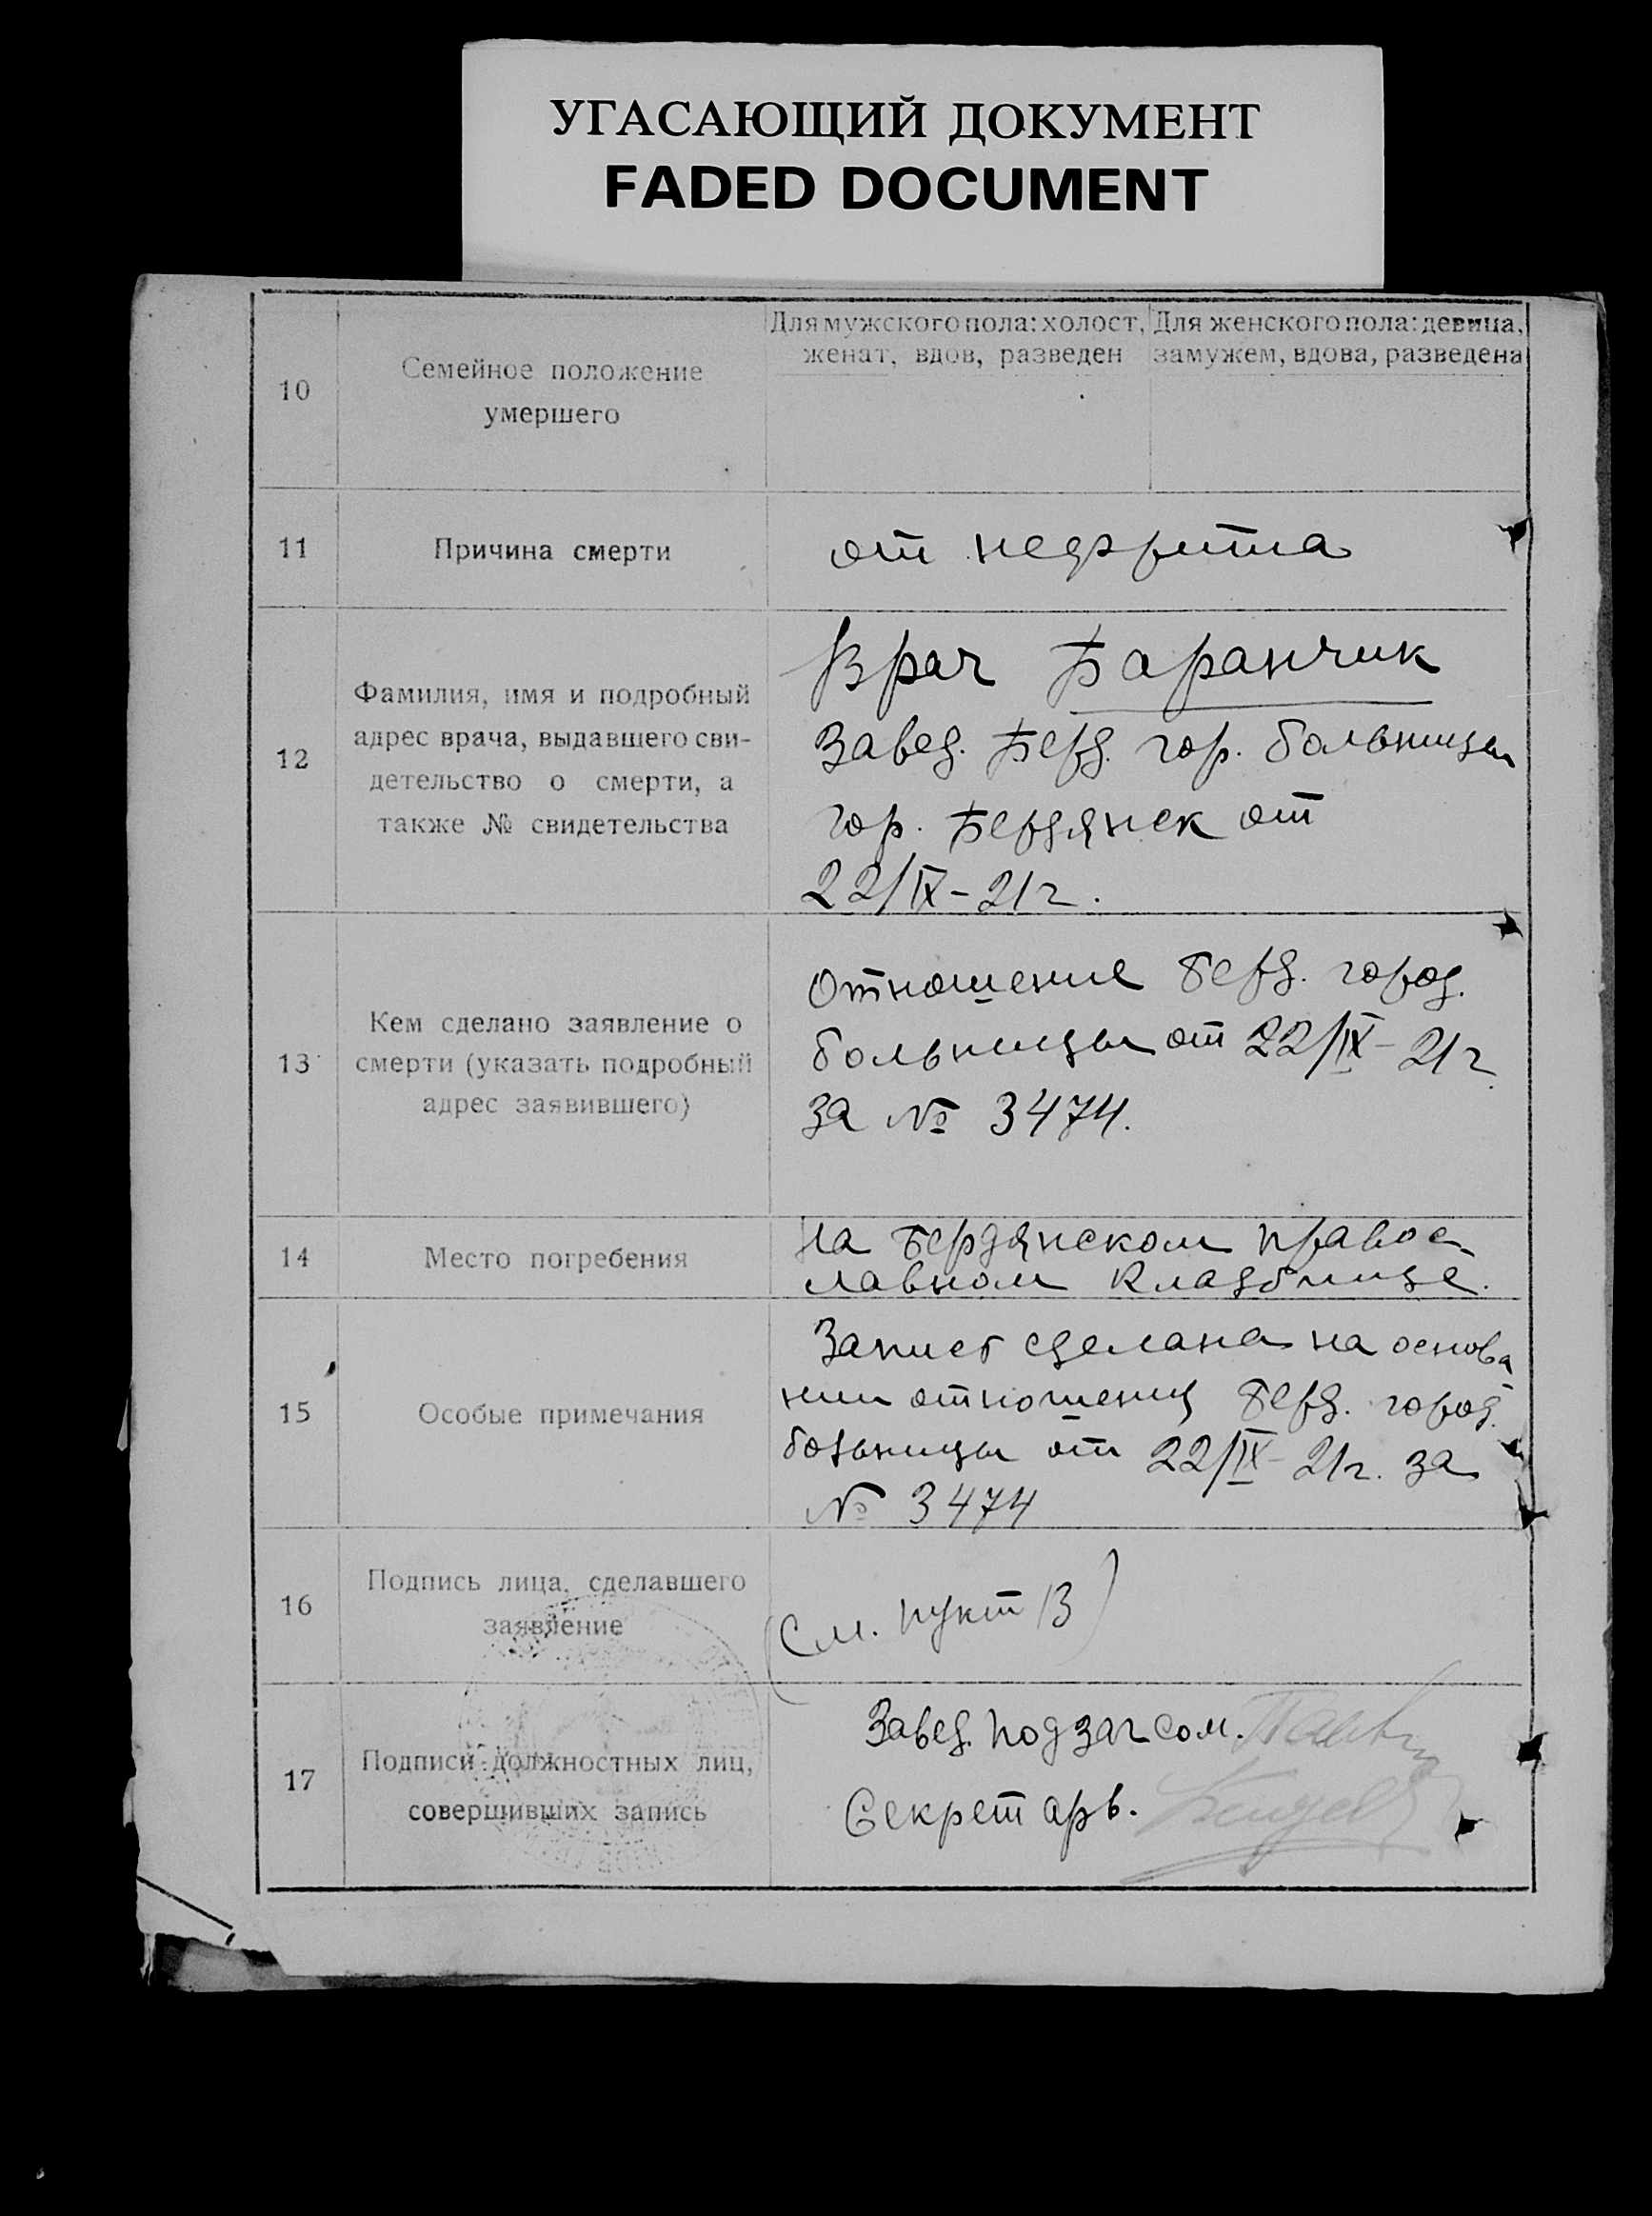 УГАСАЮЩИЙ ДОКУМЕНТ
FADED DOCUMENT
10
Семейное положение
умершего
Для мужского пола: холост,
женат, вдов, разведен
Для женского пола: девица,
замужем, вдова, разведена
11
Причина смерти
от нефрита
12
Фамилия, имя и подробный
адрес врача, выдавшего сви-
детельство о смерти, а
также № свидетельства
Врач Баранчик
Завед. Берд. гор. больницы
гор. Бердянск от
22/IX-21г.
13
Кем сделано заявление о
смерти (указать подробный
адрес заявившего)
Отношение Берд. город.
больницы от 22/IX-21г
за № 3474.
14
Место погребения
На Бердянском правос
лавном кладбище.
15
Особые примечания
Запись сделана на основа
нии отношения Берд. город.
больницы от 22/IX-21г. за
№ 3474
16
Подпись лица, сделавшего
заявление
(См. пункт 13)
17
Подписи должностных лиц,
совершивших запись
Завед. подзагсом.
Секретарь.